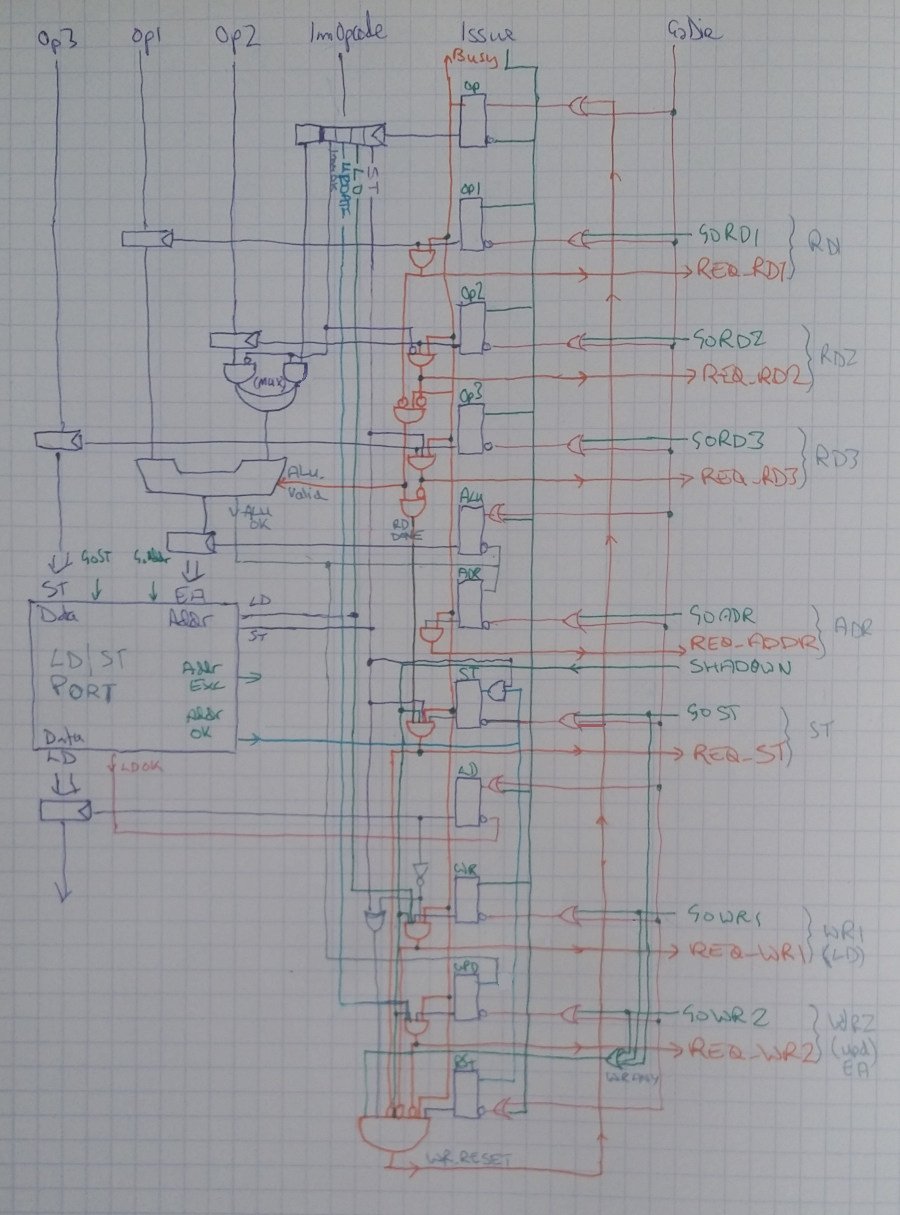 Op3 Op1 Op2 Imm Opcode Issue GoDie
Busy
Op
ST
LD
UPDATE
Op1
GORD1
RD1
REQ_RD1
Op2
GORD2
RD2
(MUX)
REQ_RD2
Op3
GORD3
RD3
ALU
Valid
REQ_RD3
ALU
OK
ALU
RD
DONE
GoST
ADR
ST EA LD
GOADR
ADR
Data Addr ST
REQ_ADDR
SHADOWN
LD/ST
PORT
Addr
Exc
ST
GOST
ST
Addr
OK
Data
REQ_ST
LD
LDOK
LD
WR
GOWR1
WR1
(LD)
REQ_WR1
UPD
GOWR2
WR2
(upd)
EA
REQ_WR2
WRANY
RST
WR_RESET